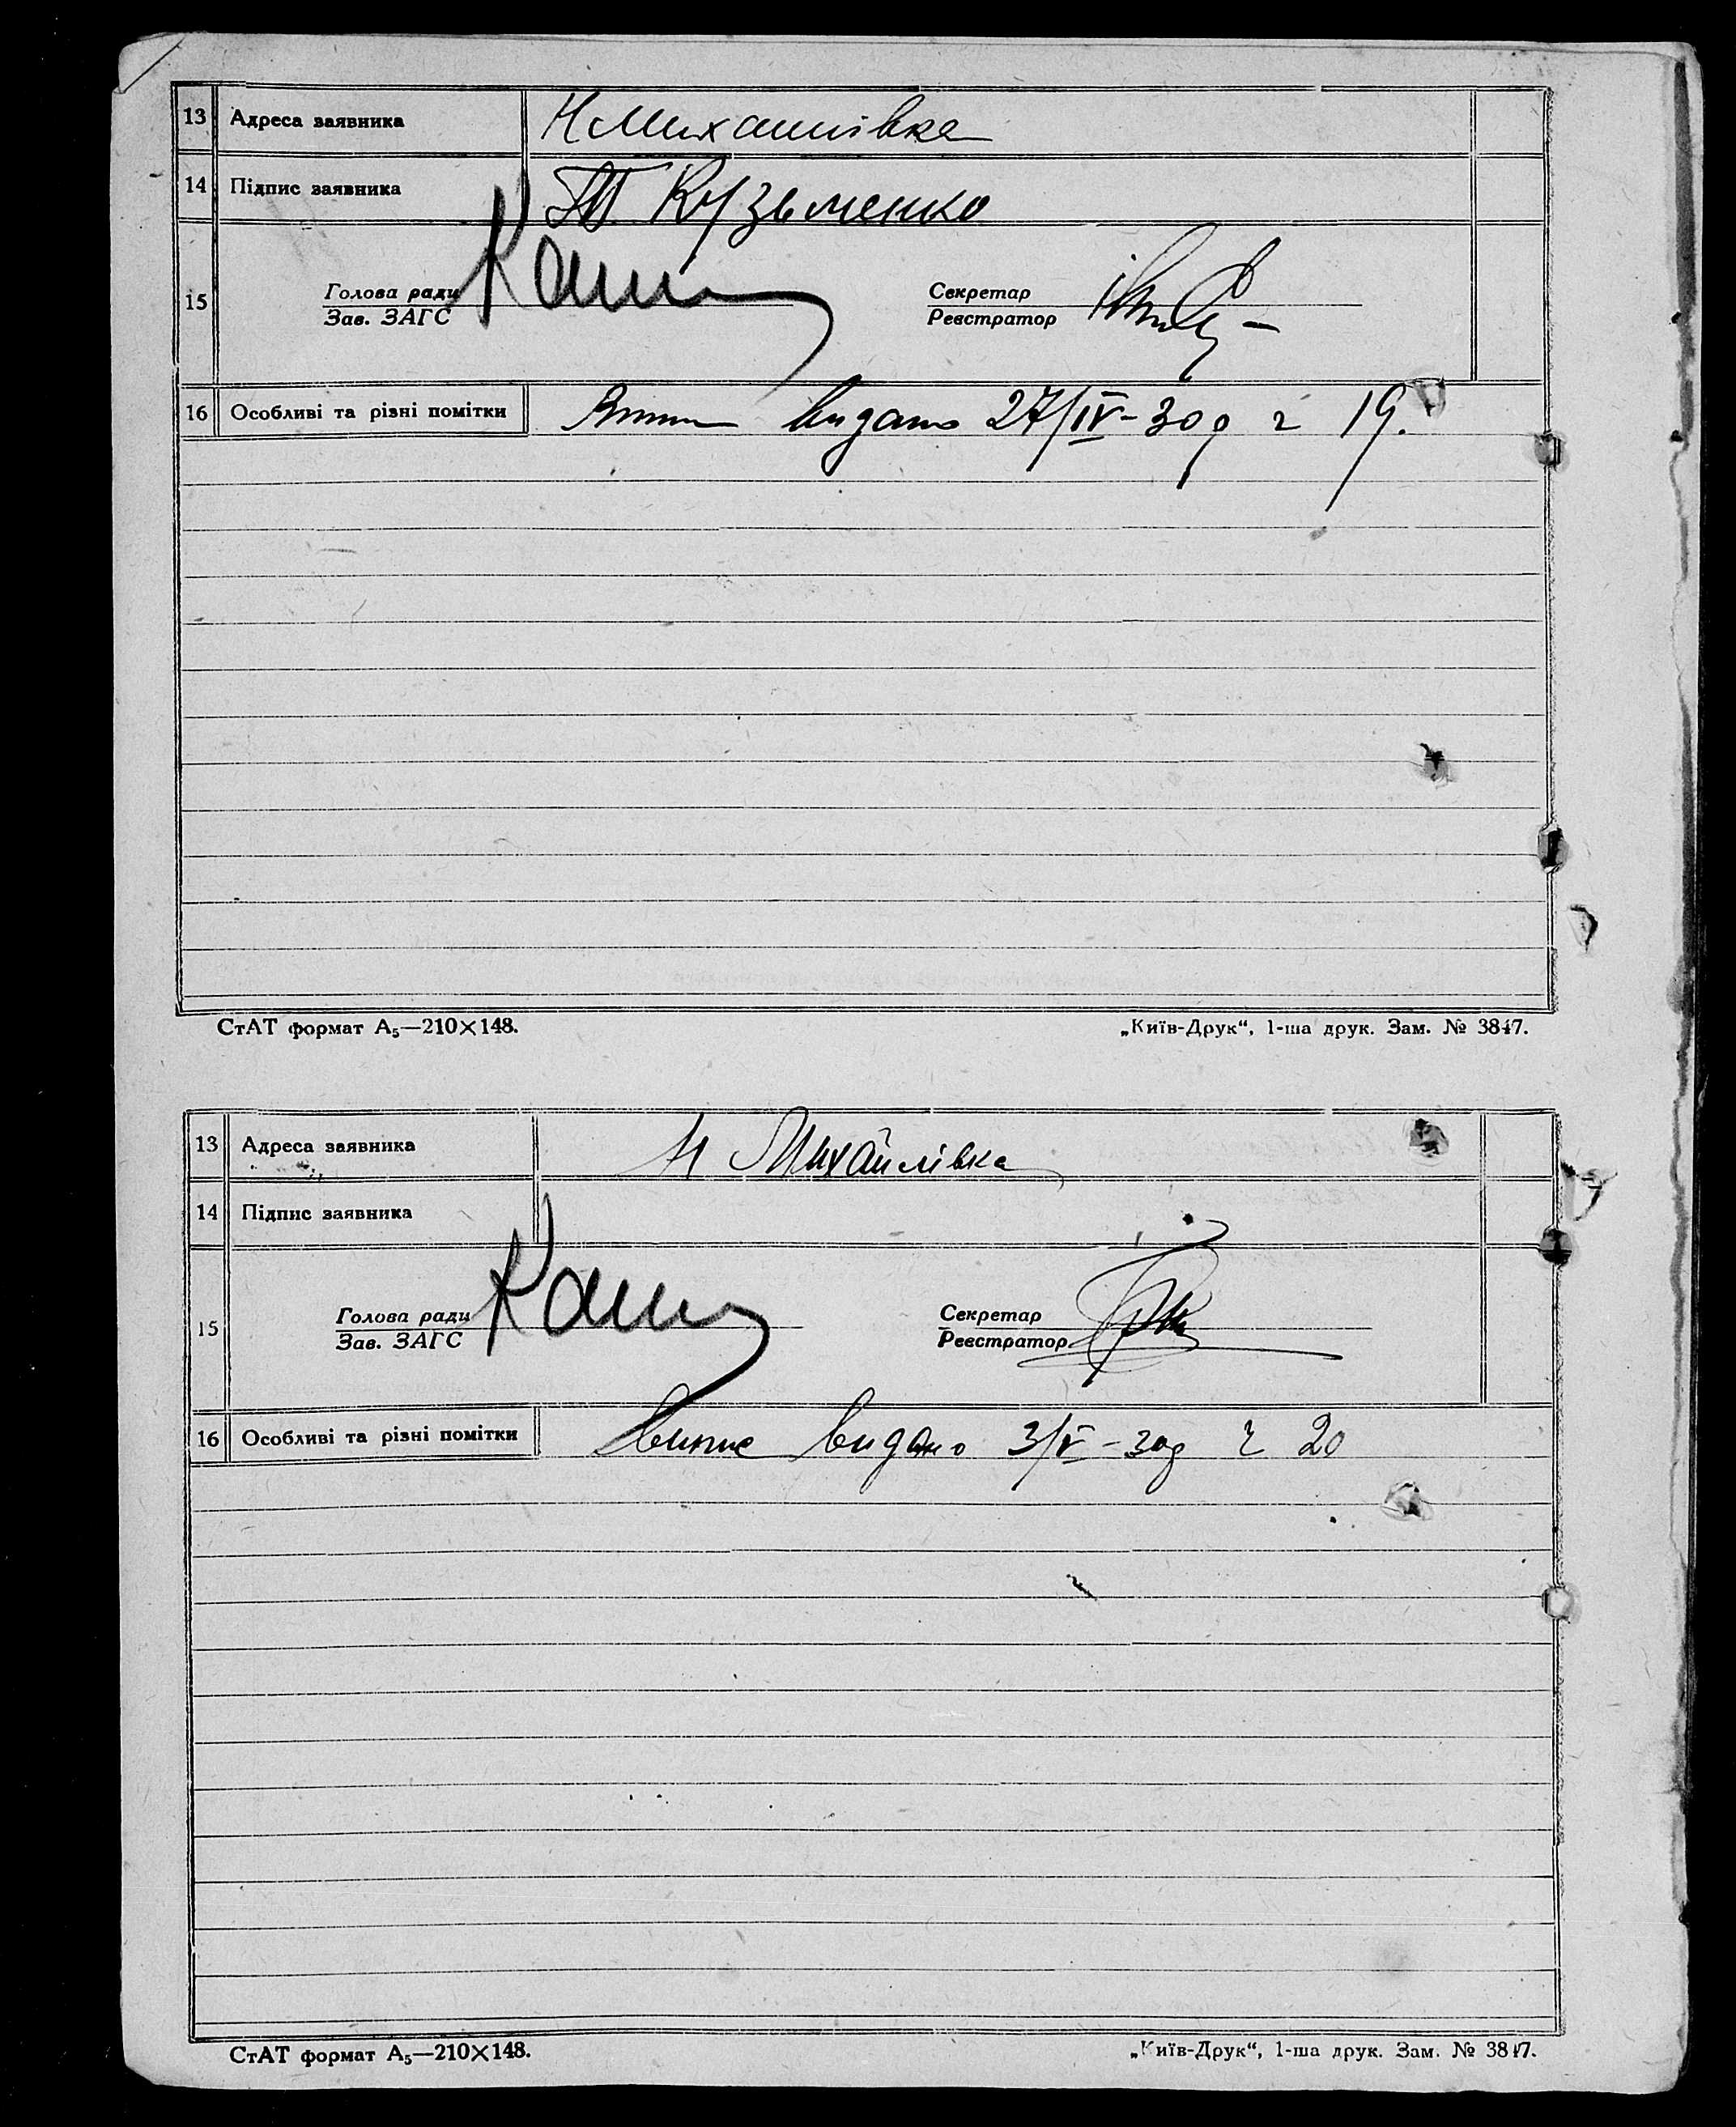 13 Адреса заявника Н Михайлівка
14 Підпис заявника Кузьменко
15 Голова ради Секретар
Зав. ЗАГС Реєстратор
16 Особливі та різні помітки видано 27/IV-30 р ч 19.
СтАТ формат А₅—210×148. „Київ-Друк“, 1-ша друк. Зам. № 3847.
13 Адреса заявника Н Михайлівка
14 Підпис заявника
15 Голова ради Секретар
Зав. ЗАГС Реєстратор
16 Особливі та різні помітки Випис видано 3/V-30р ч 20
СтАТ формат А₅—210×148. „Київ-Друк“, 1-ша друк. Зам. № 3847.